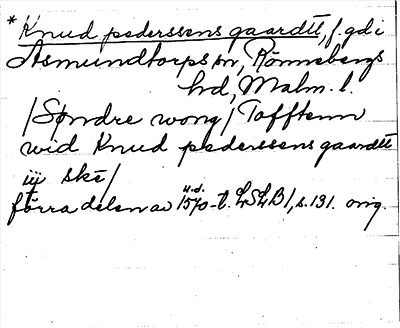 *Knud pederssens gaardtt, f. gd i
Asmundtorps sn, Rönnebergs
hd, Malm. l.
/Søndre wong/ Tofftenn
wid Knud pederssens gaardtt
iij ske/
förra delen av u.d. 1570-t. LSLB1, s. 131. orig.